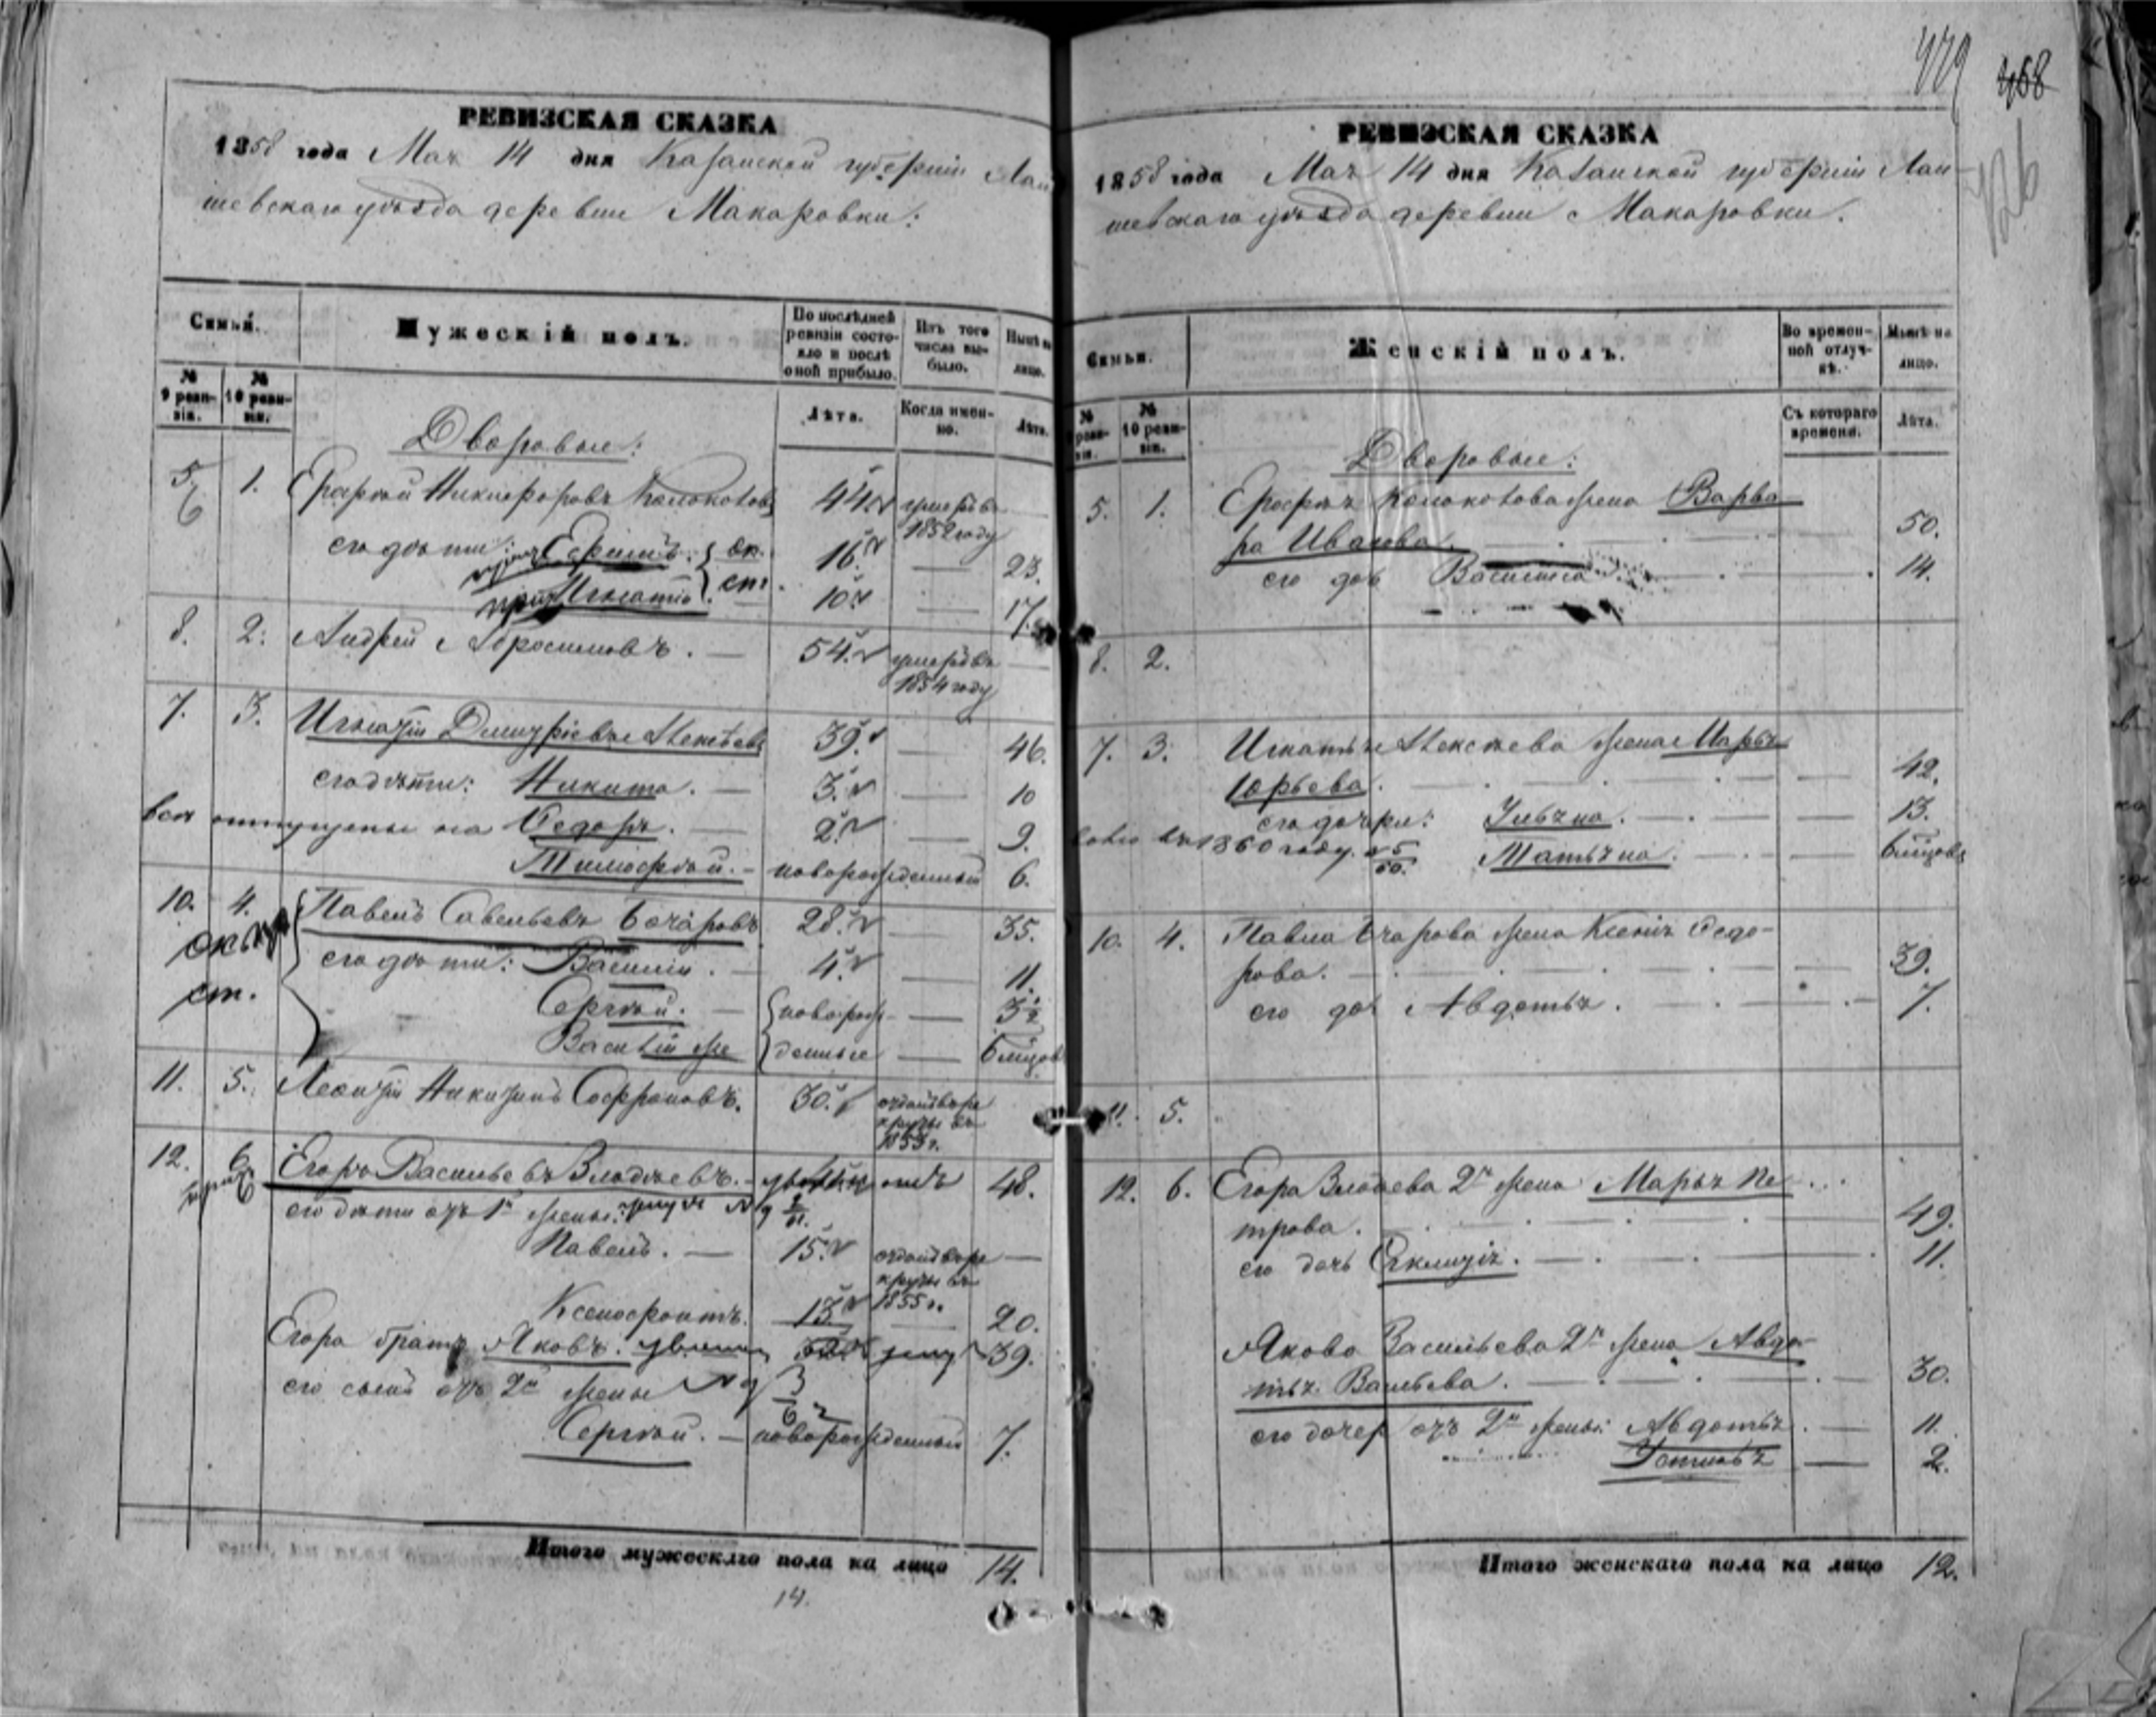 РЕВИЗСКАЯ СКАЗКА
1858 года Мая 14 дня Казанской губернии Лаи
шевскаго уѣзда деревни Макаровки:
Семьи.
Мужескій полъ.
По послѣдней ревизіи состояло и послѣ оной прибыло.
Изъ того числа выбыло.
Нынѣ на лицо.
№ 9 ревизіи.
№ 10 ревизіи.
Лѣта.
Когда именно.
Лѣта.
Дворовые:
5 6 1. Ерофей Никифоровъ Колокотовъ 44. умеръ въ 1852 году
его дѣти: Ефимъ. 16. — 23.
Игнатій. 10. — 17.
8. 2. Андрей Абросимовъ. — 54. умеръ въ 1854 году
7. 3. Игнатій Дмитріевъ Алексѣевъ 39. — 46.
его дѣти: Никита. — 3. — 10
всѣ отпущены на Федоръ. — 2. — 9.
Тимофей. — новорожденный 6.
10. 4. Павелъ Савельевъ Бочаровъ 28. — 35.
его дѣти: Василій. — 4. — 11.
Сергѣй. — новорож- — 3½
ст.
Василій же денные — 6 мѣсцовъ
11. 5. Леонтій Никитинъ Софроновъ. 30. отданъ въ рекруты въ 1855 г.
12. 6. Егоръ Васильевъ Злодѣевъ. — 48.
его дѣти отъ 1й жены:
Павелъ. — 15. отданъ въ рекруты въ 1855 г. —
Ксенофонтъ. 13. — 20.
Егора братъ Яковъ. 32. 39.
его сынъ отъ 2й жены
Сергѣй. — новорожденный 7.
Итого мужескаго пола на лицо 14.
14.
479 468
РЕВИЗСКАЯ СКАЗКА
1858 года Мая 14 дня Казанской губерніи Лаи
шевскаго уѣзда деревни Макаровки.
Семьи.
Женскій полъ.
Во временной отлучкѣ.
Нынѣ на лицо.
№ 9 ревизіи.
№ 10 ревизіи.
Съ котораго времени.
Лѣта.
Дворовые:
5. 1. Ерофея Колокотова жена Варва
ра Иванова. 50.
его дочь Василиса 14.
8. 2.
7. 3. Игнатья Алексѣева жена Марья
Юрьева. 42.
его дочери: Ульяна. 13.
волю въ 1860 году. Матьяна. 6 мѣсцовъ
10. 4. Павла Бчарова жена Ксенія Федо-
рова. 39.
его дочь Авдотья. 7.
11. 5.
12. 6. Егора Злодѣева 2я жена Марья Пе
трова. 49.
его дочь 11.
Якова Васильева 2я жена Авдо-
тья Васильева. 30.
его дочери отъ 2й жены: Авдотья. 11.
Устинья 2.
Итого женскаго пола на лицо 12.